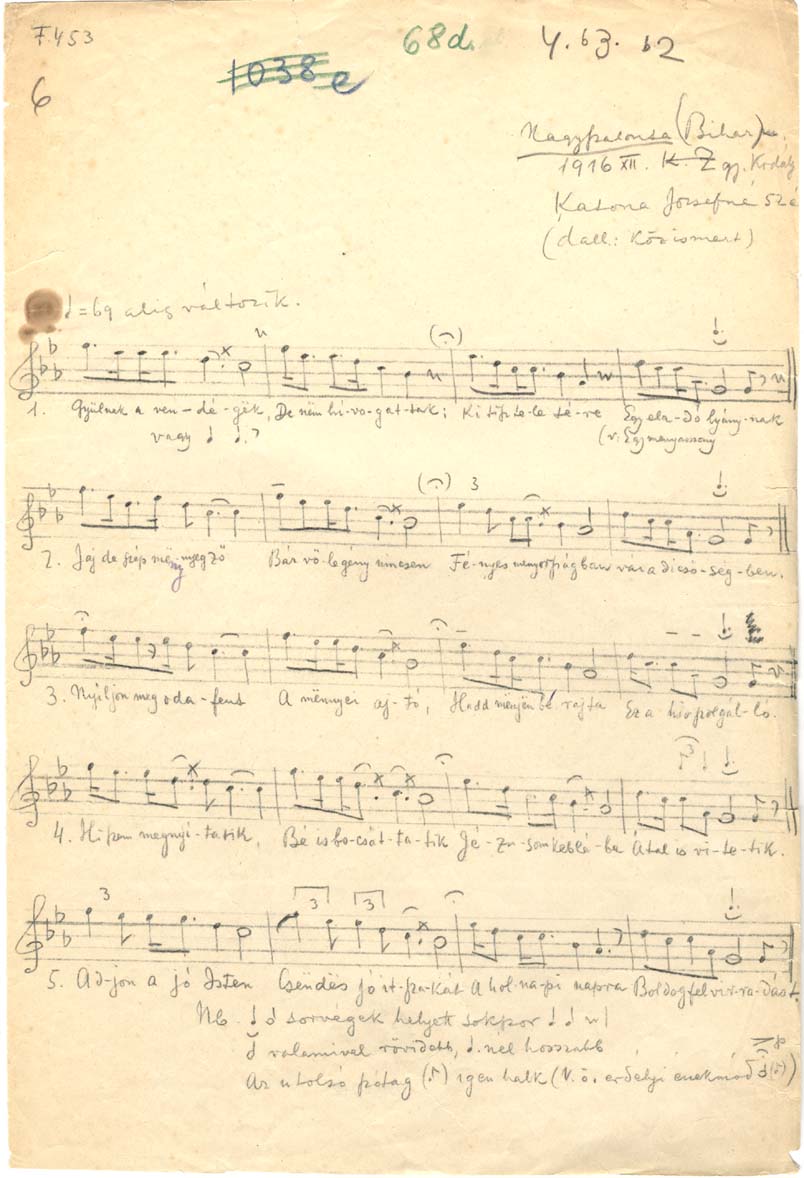 F.453
68d.
4. b3. b2
1038e
6
Nagyszalonta (Bihar)
1916 XII. K. Z gy. Kodály
Katona Józsefné Szé
(dall.: Közismert)
= 69 alig változik.
1. Gyülnek a ven-dé-gek, De nëm hí-vo-gat-tak; Ki tisz-te-le-té-re Egy ela-dó lyány-nak
vagy
(v. Egy mënyasszony
3
2. Jaj de szép mëny-nyegző Bár vő-legény nincsen Fé-nyes mënyországban vár a dicső-ség-ben.
3. Nyíljon meg oda-fent A mënnyei aj-tó, Hadd mënjën bé rajta Ez a hív szolgál-ló.
3
4. Hiszem megnyí-tatik, Bé is bo-csát-ta-tik Jé-zu-som keblé-be Által is vi-te-tik.
3 3 3
5. Ad-jon a jó Isten Csëndës jó éj-sza-kát A hol-na-pi napra Boldog fel vir-ra-dást.
Nb. sorvégek helyett sokszor
valamivel rövidebb, nél hosszabb
Az utolsó szótag igen halk (V. ö. erdélyi énekmód